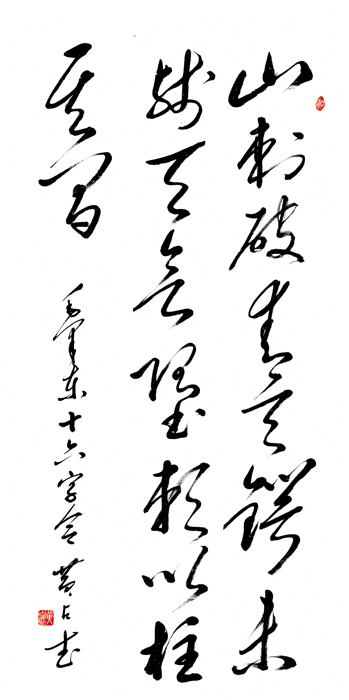 山刺破青天锷未
残天欲堕赖以柱
其间
毛泽东十六字令 黄占书